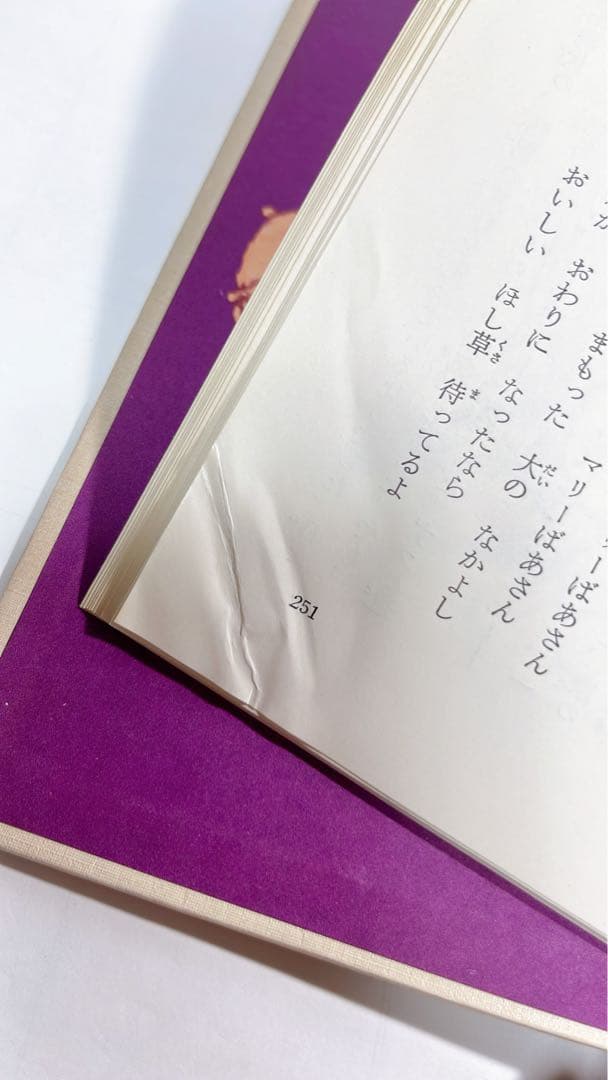 ーばあさん
マリーばあさん
まもった 大の なかよし
が おわりに なったなら
おいしい ほし草 待ってるよ
251